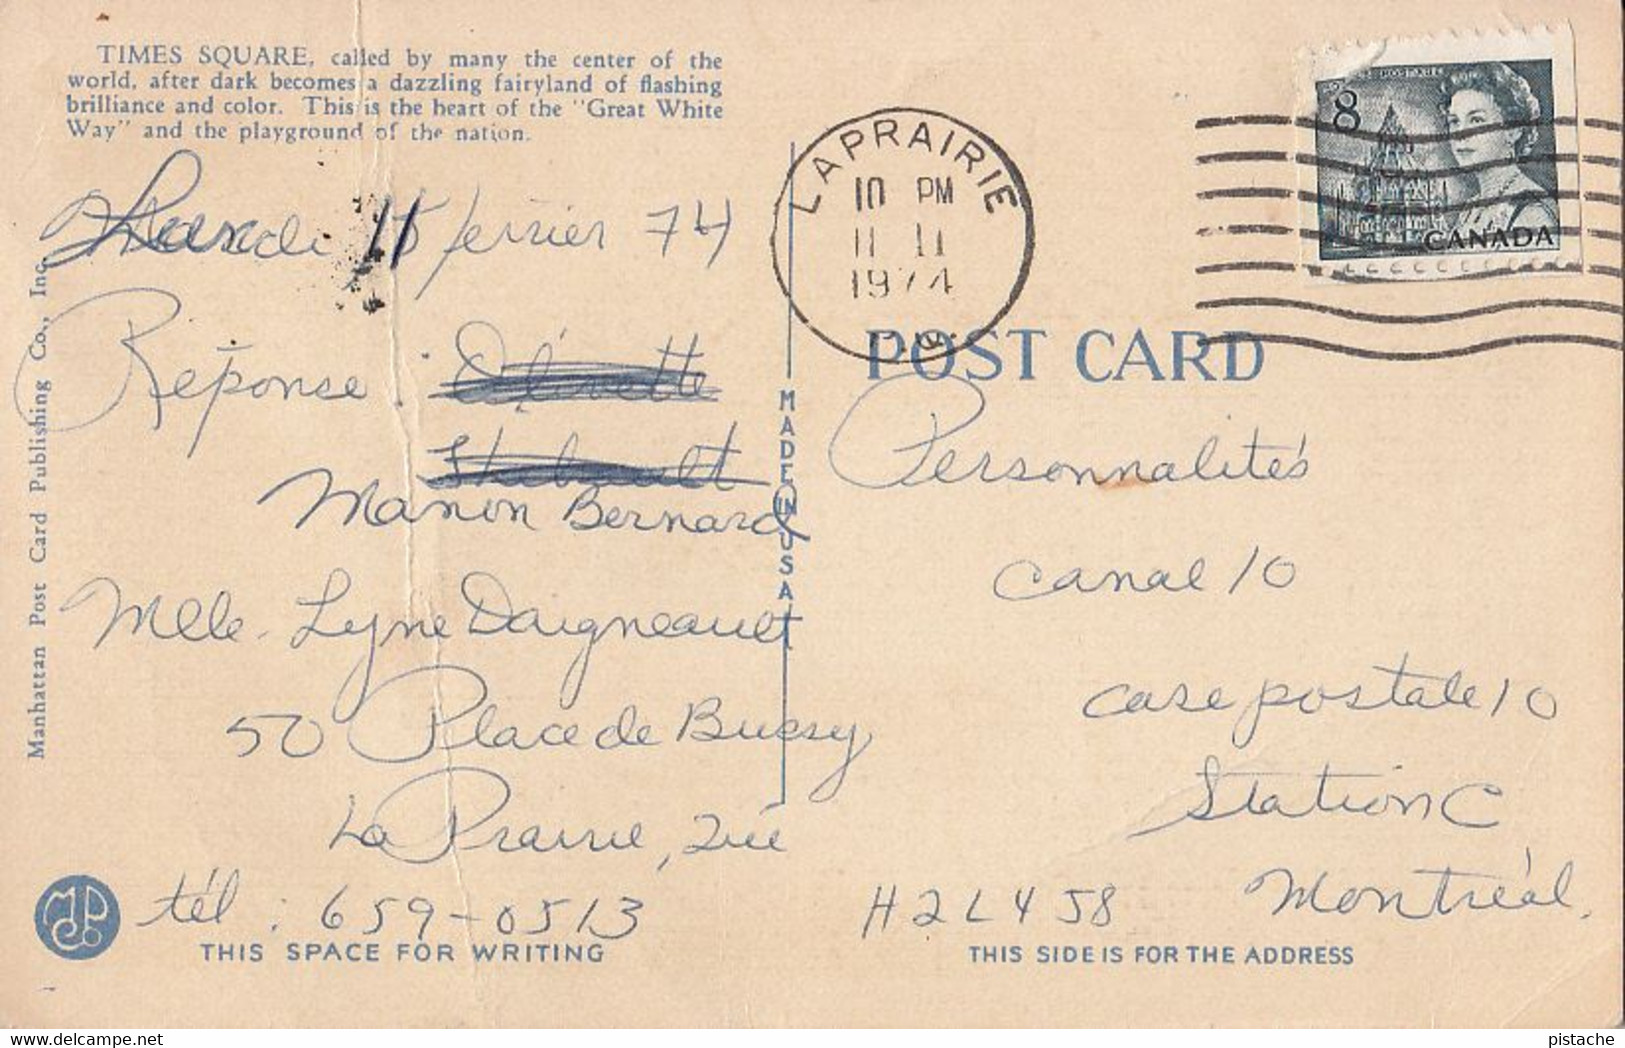 TIMES SQUARE, called by many the center of the
world, after dark becomes a dazzling fairyland of flashing
brilliance and color. This is the heart of the "Great White
Way" and the playground of the nation.
11 février 74
Réponse :
Manon Bernard
Mlle. Lyne Daigneault
50 Place de Bussy
La Prairie, Qué
tél : 659-0513
THIS SPACE FOR WRITING
Manhattan Post Card Publishing Co., Inc.
MADE IN USA
LAPRAIRIE
10 PM
11 II
1974
P.Q.
8
CANADA
POST CARD
Personnalités
Canal 10
Case postale 10
Station C
Montréal.
H2L 4J8
THIS SIDE IS FOR THE ADDRESS
pistache
delcampe.net